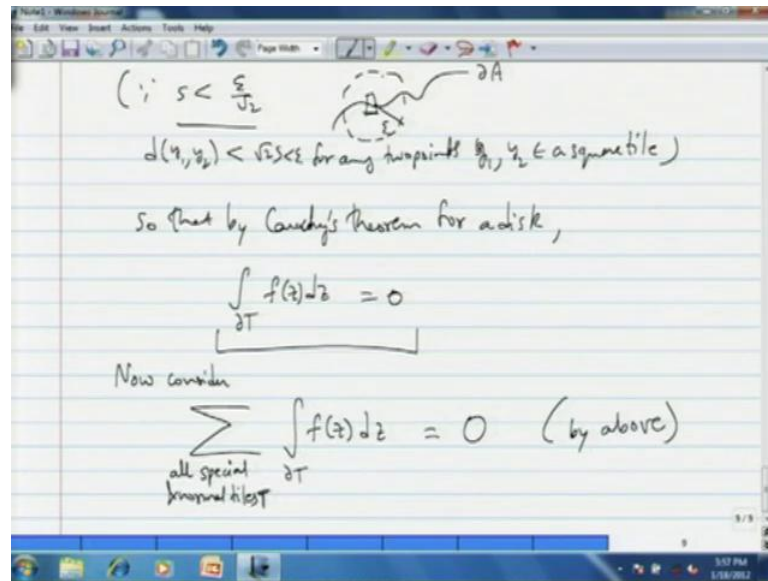 Note1 - Windows Journal
File Edit View Insert Actions Tools Help
Page Width
(∵ s < ε/√2
∂A
ε
d(y₁, y₂) < √2 s < ε for any two points y₁, y₂ ∈ a square tile)
so that by Cauchy's theorem for a disk,
∫_∂T f(z) dz = 0
Now consider
∑ ∫_∂T f(z) dz = 0 (by above)
all special
& normal tiles T
5/5
9
3:57 PM
1/18/2012